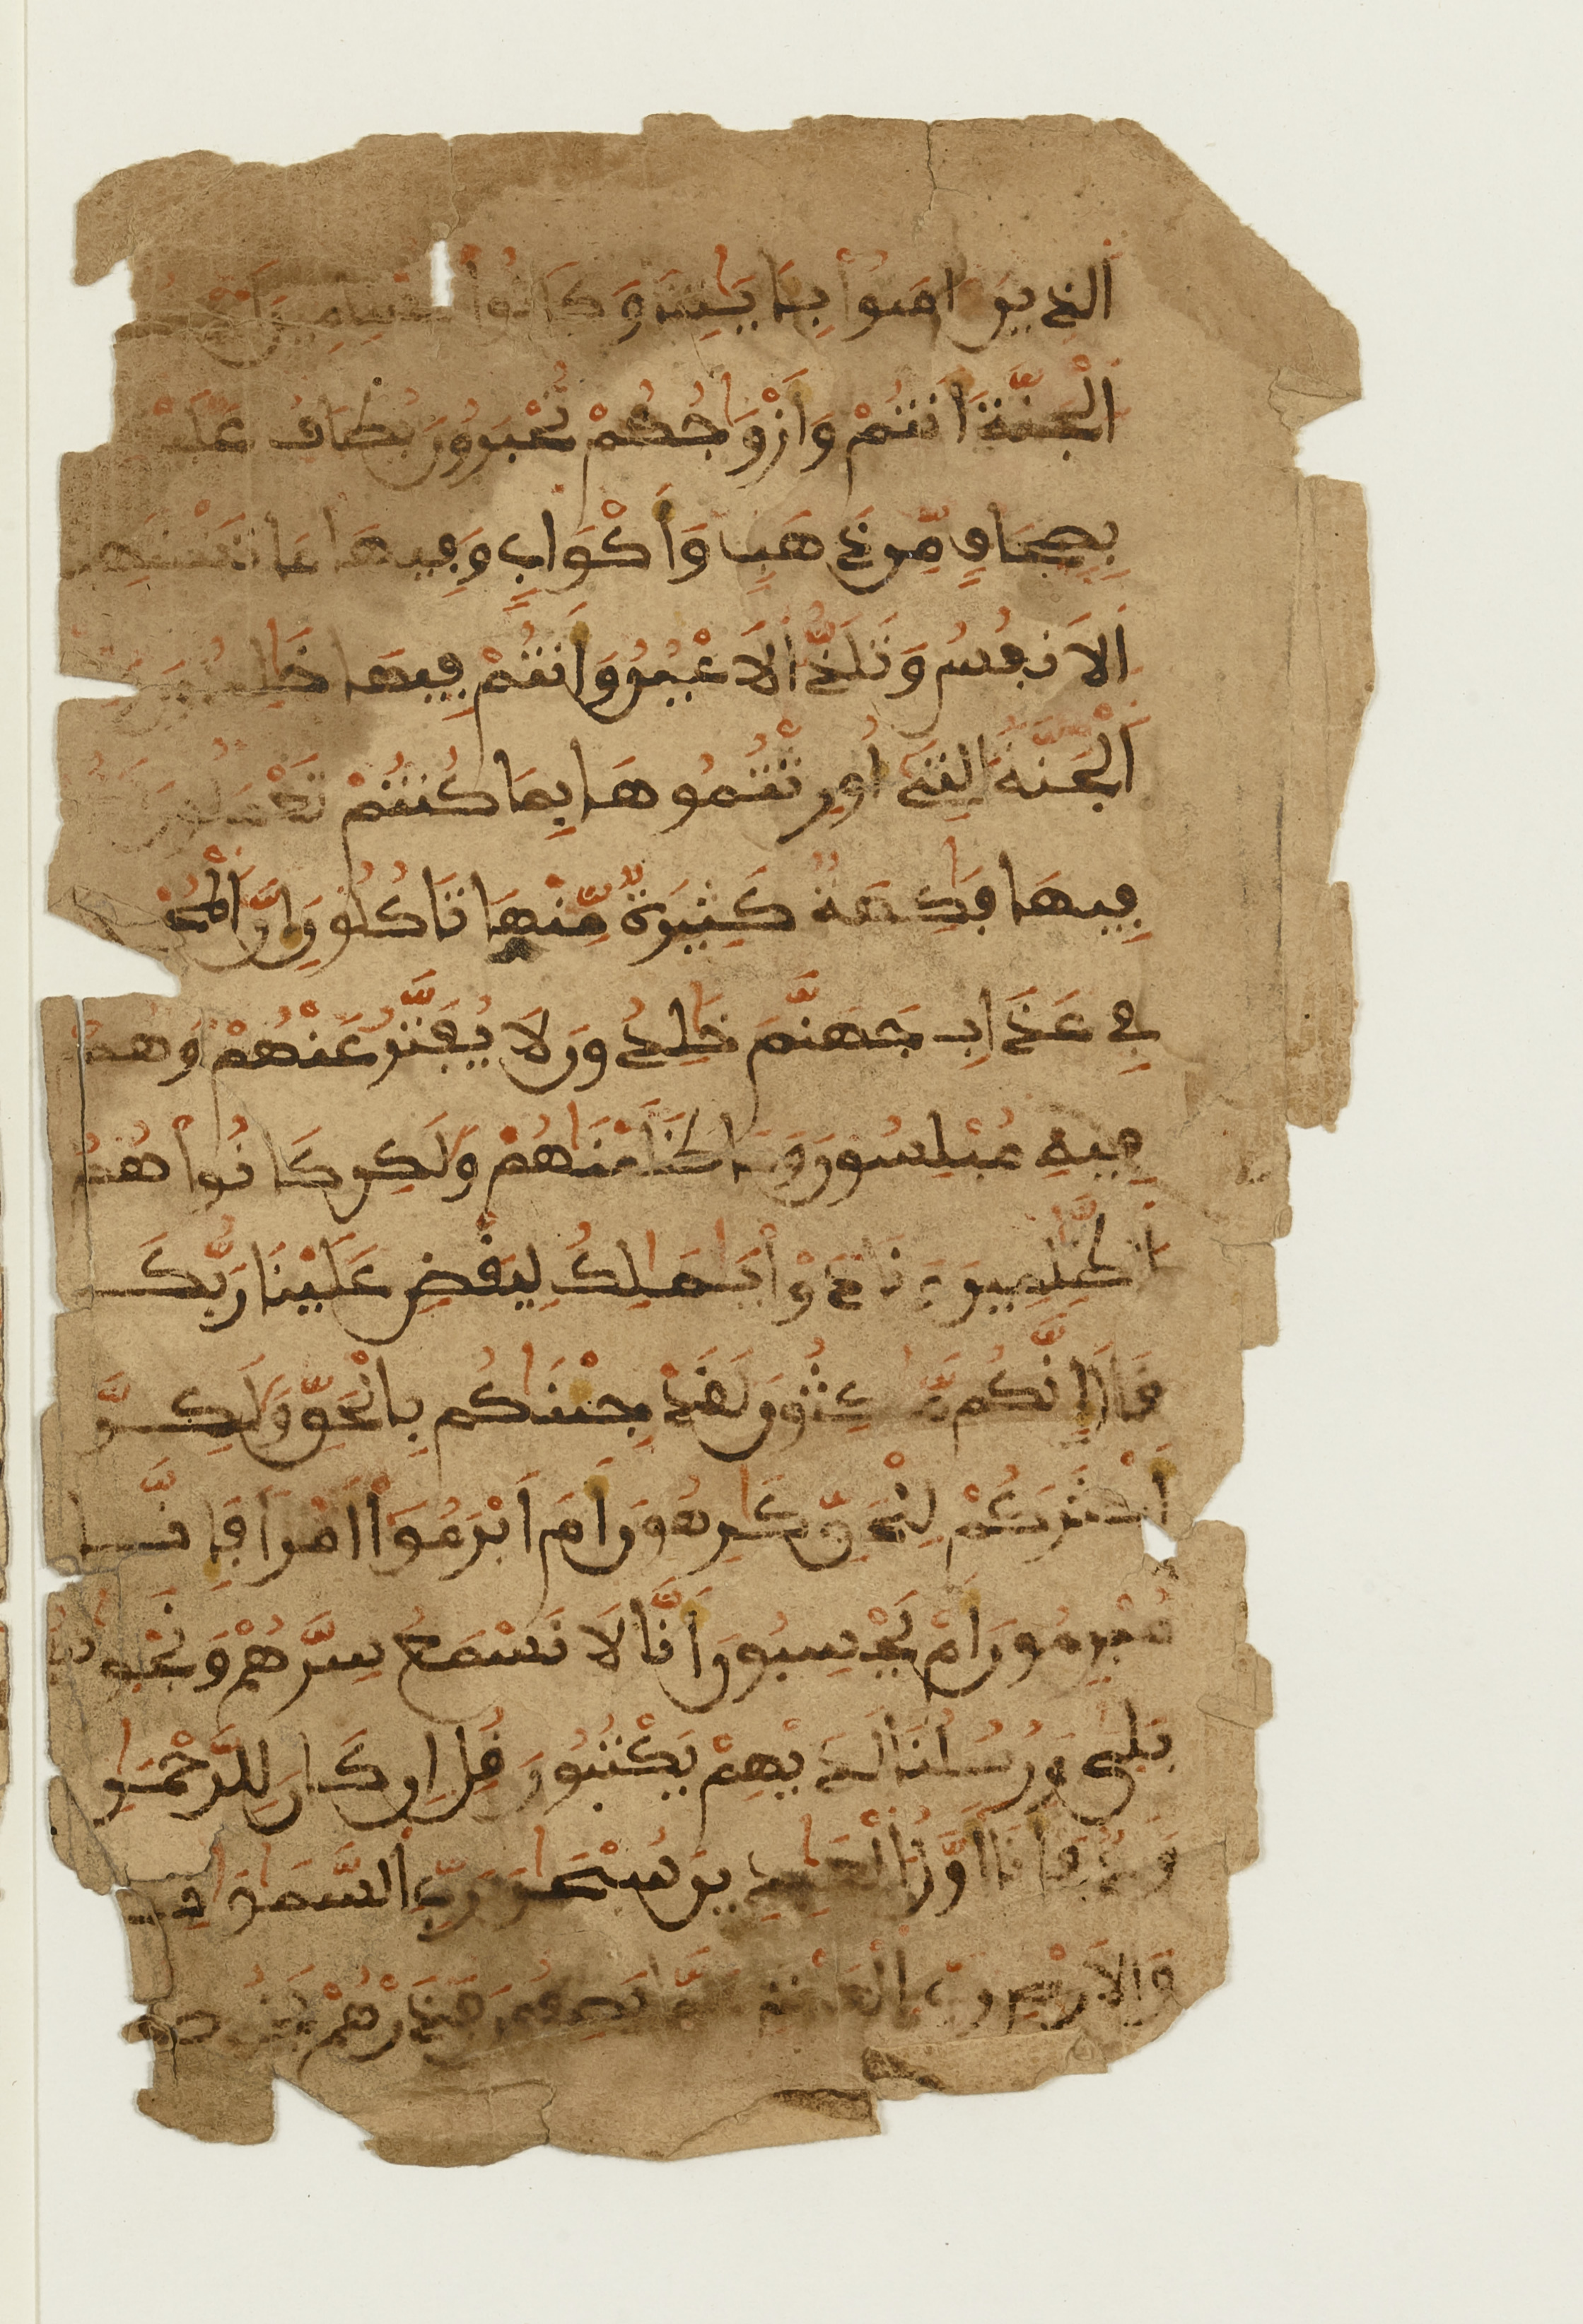 الذين امنوا بايتنا وكانوا مسلمين ا
الْجَنَّةَ أَنتُمْ وَأَزْوَاجُكُمْ تُحْبَرُونَ يُطَافُ عَلَيْ
بِصِحَافٍ مِّن ذَهَبٍ وَأَكْوَابٍ وَفِيهَا مَا تَشْتَهِ
الَانفُسُ وَتَلَذُّ الَاعْيُنُ وَأَنتُمْ فِيهَا خَلِدُونَ
الْجَنَّةُ التِي أُورِثْتُمُوهَا بِمَا كُنتُمْ تَعْمَلُونَ
فِيهَا فَكِهَةٌ كَثِيرَةٌ مِّنْهَا تَاكُلُونَ إِنَّ الْمُجْ
فِي عَذَابِ جَهَنَّمَ خَلِدُونَ لَا يُفَتَّرُ عَنْهُمْ وَهُمْ
فِيهِ مُبْلِسُونَ وَمَا ظَلَمْنَاهُمْ وَلَكِن كَانُوا هُمُ
الظَّلِمِينَ وَنَادَوْا يَمَلِكُ لِيَقْضِ عَلَيْنَا رَبُّكَ
قَالَ إِنَّكُم مَّكِثُونَ لَقَدْ جِئْنَاكُم بِالْحَقِّ وَلَكِنَّ
أَكْثَرَكُمْ لِلْحَقِّ كَرِهُونَ أَمَ ابْرَمُوا أَمْراً فَإِنَّا
مُبْرِمُونَ أَمْ يَحْسِبُونَ أَنَّا لَا نَسْمَعُ سِرَّهُمْ وَنَجْوِيهُ
بَلَى وَرُسُلُنَا لَدَيْهِمْ يَكْتُبُونَ قُلِ ان كَانَ لِلرَّحْمَنِ
وَلَدٌ فَأَنَا أَوَّلُ الْعَبِدِينَ سُبْحَنَ رَبِّ السَّمَوَتِ
وَالَارْضِ رَبِّ الْعَرْشِ عَمَّا يَصِفُونَ فَذَرْهُمْ يَخُوضُ